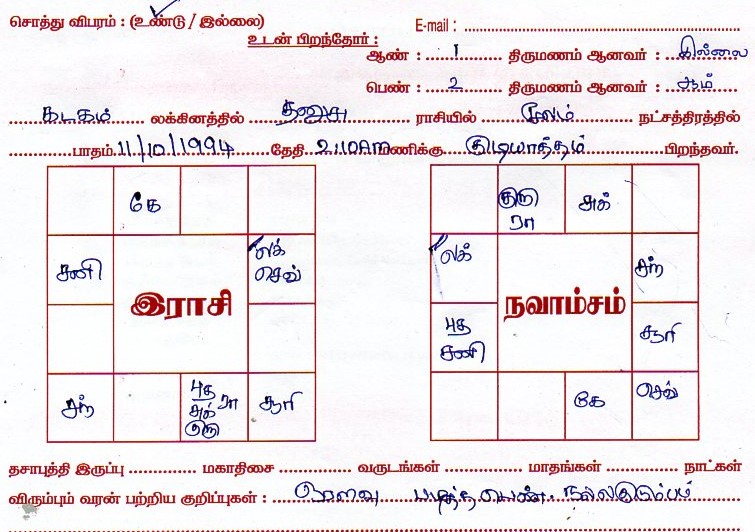 சொத்து விபரம் : (உண்டு / இல்லை) E-mail :
உடன் பிறந்தோர் :
ஆண் : 1 திருமணம் ஆனவர் : இல்லை
பெண் : 2 திருமணம் ஆனவர் : ஆம்
கடகம் லக்கினத்தில் தனுசு ராசியில் மூலம் நட்சத்திரத்தில்
பாதம் 11/10/1994 தேதி 2:10AM மணிக்கு குடியாத்தம் பிறந்தவர்.
கே
குரு அக்
ரா
சனி லக் லக் சந்
செவ்
இராசி நவாம்சம்
புத சூரி
சனி
சந் புத ரா சூரி கே செவ்
அக்
குரு
தசாபுத்தி இருப்பு மகாதிசை வருடங்கள் மாதங்கள் நாட்கள்
விரும்பும் வரன் பற்றிய குறிப்புகள் : ஓரளவு படித்த பெண். நல்லகுடும்பம்